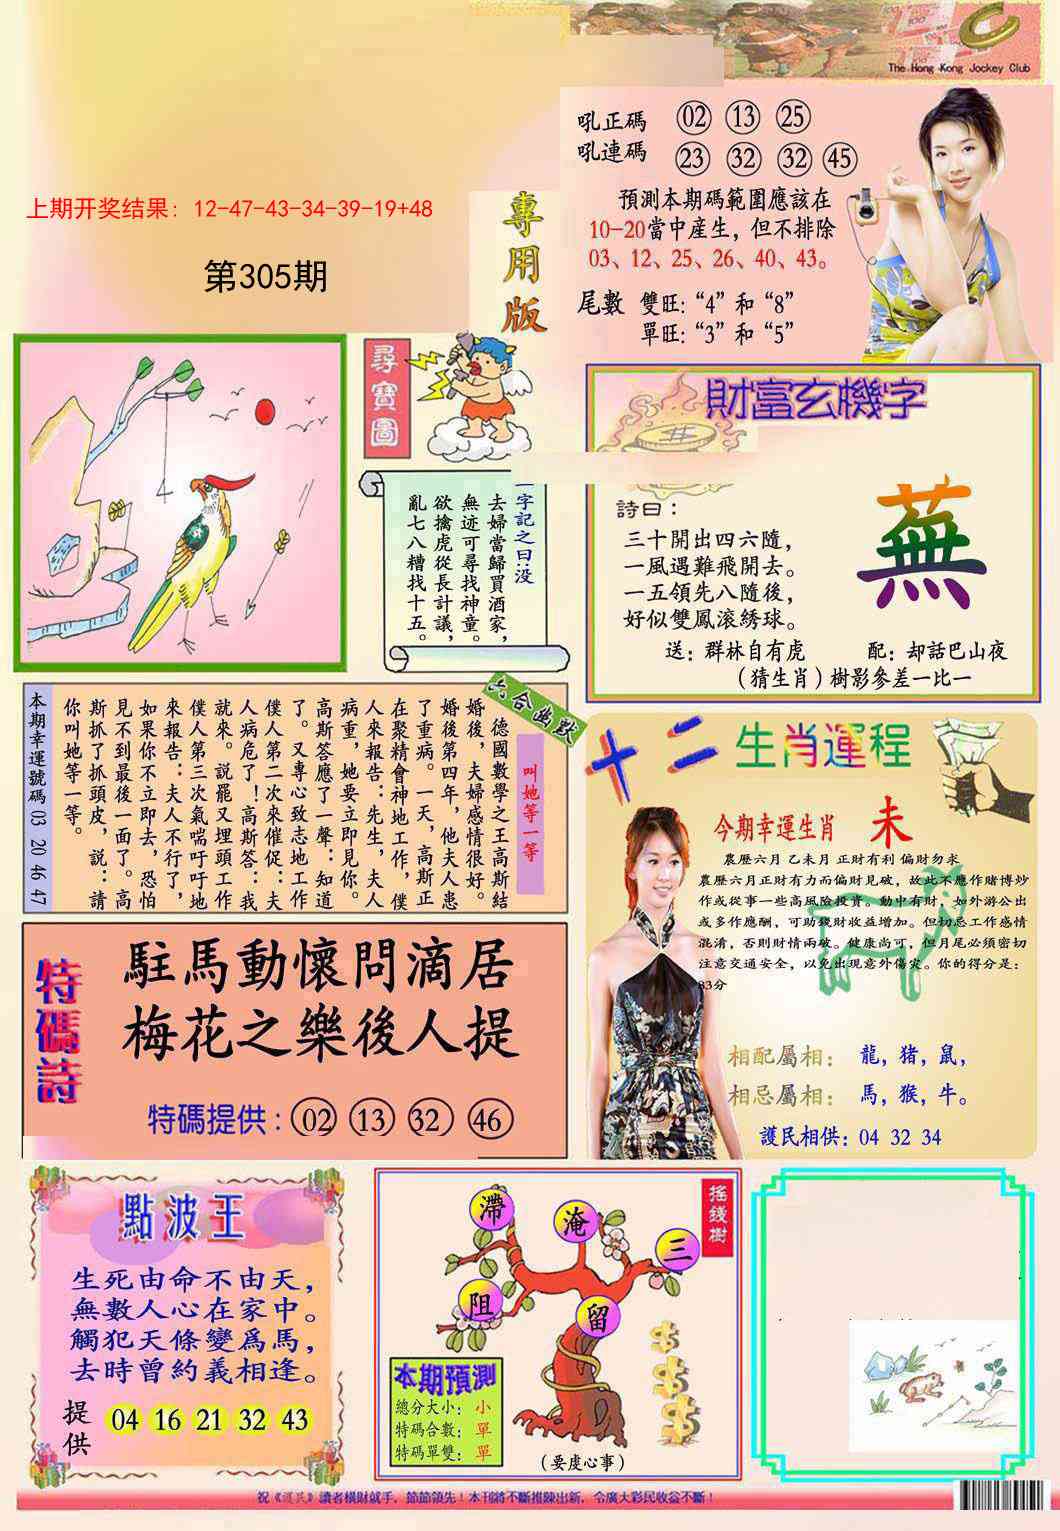 The Hong Kong Jockey Club
吼正碼 02 13 25
吼連碼 23 32 32 45
預測本期碼範圍應該在
10-20當中産生，但不排除
03、12、25、26、40、43。
尾數 雙旺:“4”和“8”
單旺:“3”和“5”
上期开奖结果: 12-47-43-34-39-19+48
第305期
專用版
尋寶圖
一字記之曰:没
去婦當歸買酒家，
無迹可尋找神童。
欲擒虎從長計議，
亂七八糟找十五。
財富玄機字
詩曰：
三十開出四六隨，
一風遇難飛開去。
一五領先八隨後，
好似雙鳳滚綉球。
蕪
送：群林自有虎 配：却話巴山夜
（猜生肖）樹影參差一比一
六合幽默
叫她等一等
德國數學之王高斯結
婚後，夫婦感情很好。
婚後第四年，他夫人患
了重病。一天，高斯正
在聚精會神地工作，僕
人來報告：先生，夫人
病重，她要立即見你。
高斯答應了一聲：知道
了。又專心致志地工作
僕人第二次來催促：夫
人病危了！高斯答：我
就來。説罷又埋頭工作
僕人第三次氣喘吁吁地
來報告：夫人不行了，
如果你不立即去，恐怕
見不到最後一面了。高
斯抓了抓頭皮，説：請
你叫她等一等。
本期幸運號碼 03 20 46 47
十二生肖運程
今期幸運生肖 未
農歷六月 乙未月 正財有利 偏財勿求
農歷六月正財有力而偏財見破，故此不應作賭博炒
作或從事一些高風險投資。動中有財，如外游公出
或多作應酬，可助錢財收益增加。但切忌工作感情
混淆，否則財情兩破。健康尚可，但月尾必須密切
注意交通安全，以免出現意外傷灾。你的得分是：
83分
相配屬相：龍，猪，鼠，
相忌屬相：馬，猴，牛。
護民相供：04 32 34
特碼詩
駐馬動懷問滴居
梅花之樂後人提
特碼提供：02 13 32 46
點波王
生死由命不由天，
無數人心在家中。
觸犯天條變爲馬，
去時曾約義相逢。
提供 04 16 21 32 43
搖錢樹
滯 淹 三
阻 留
本期預測
總分大小：小
特碼合數：單
特碼單雙：單
（要虔心事）
祝《護民》讀者橫財就手，節節領先！本刊將不斷推陳出新，令廣大彩民收益不斷！